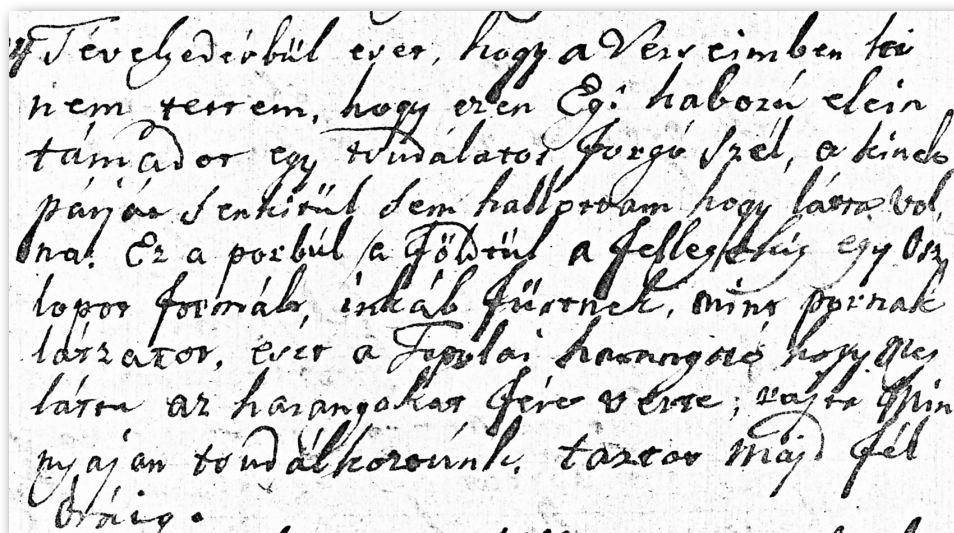 Tévelyedésbül eset, hogy a Verseimben ki
nem tettem, hogy ezen Égi háború elein
támádot egy tsudálatos forgó szél, a kinek
párját senkitül sem hallottam hogy látta vol
na. Ez a porbúl /a Földtül a fellegekig egy Osz
lopot formált, inkáb füstnek, mint pornak
látzatot, ezt a Topolai harangozó hogy meg
látta az harangokat félre verte; rajta Min
nyáján tsudálkoztunk, tartot majd fél
Óráig.